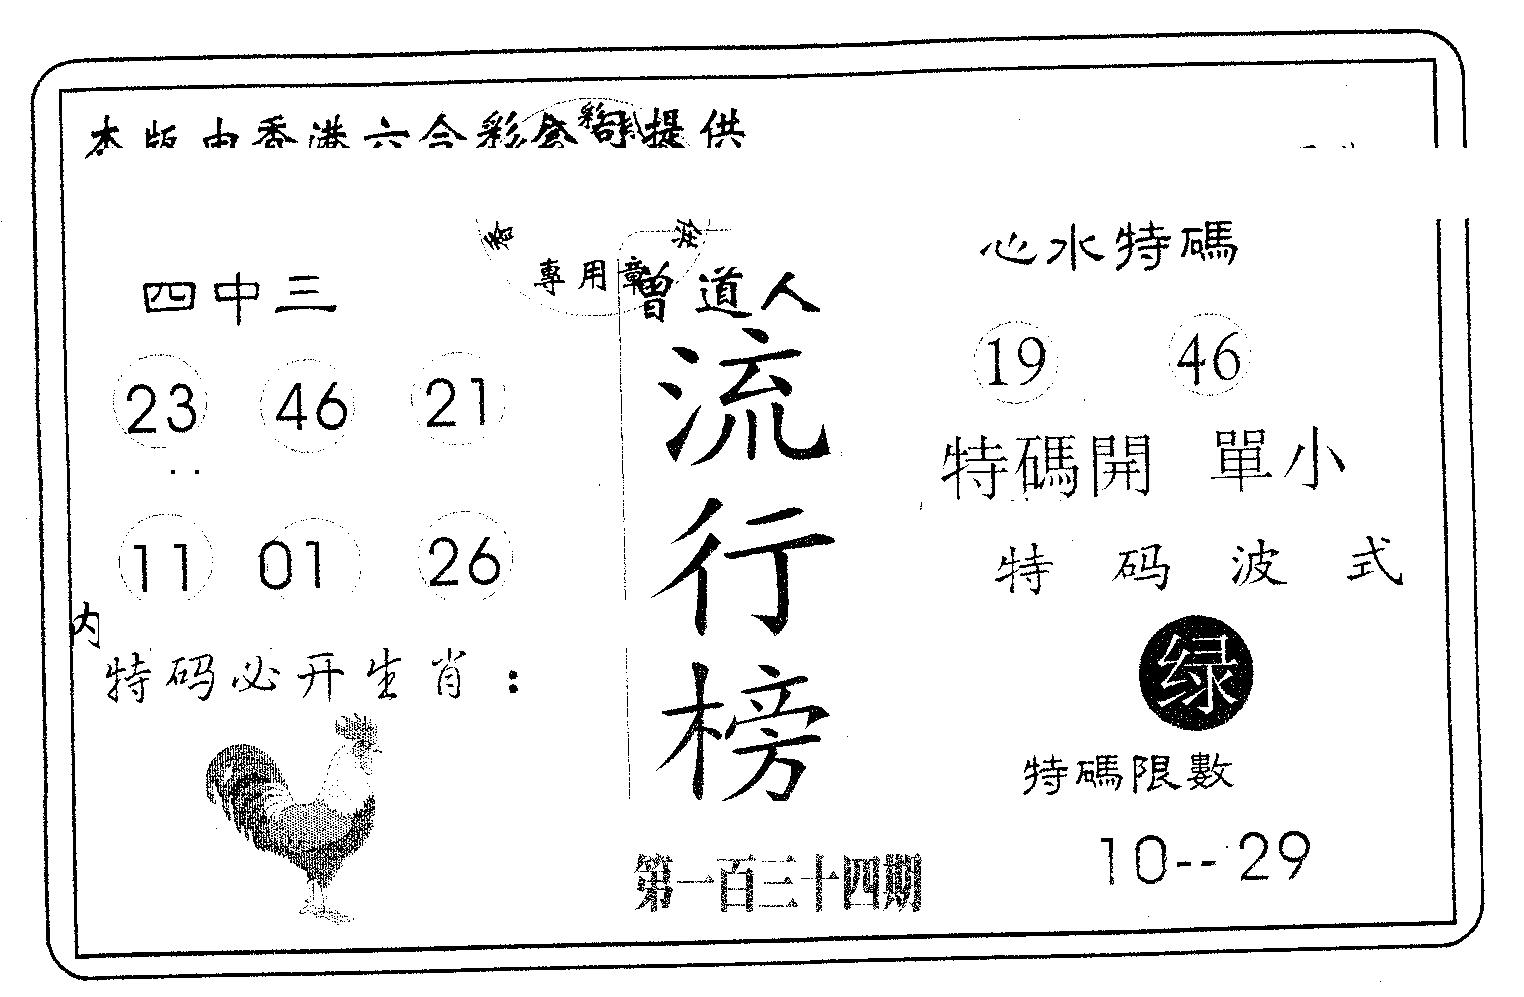 本版由香港六合彩公司提供
專用章
曾道人
流行榜
第一百三十四期
四中三
23 46 21
11 01 26
内
特码必开生肖：
心水特碼
19 46
特碼開 單小
特码波式
绿
特碼限數
10--29